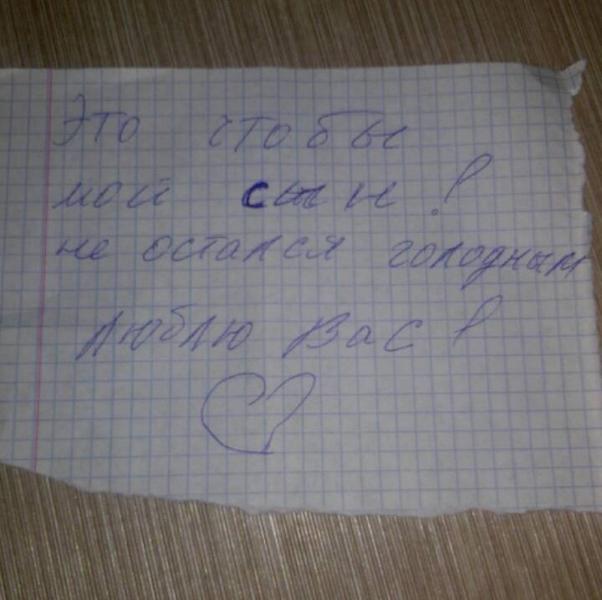 Это чтобы
мой сын!
не остался голодным
Люблю Вас!